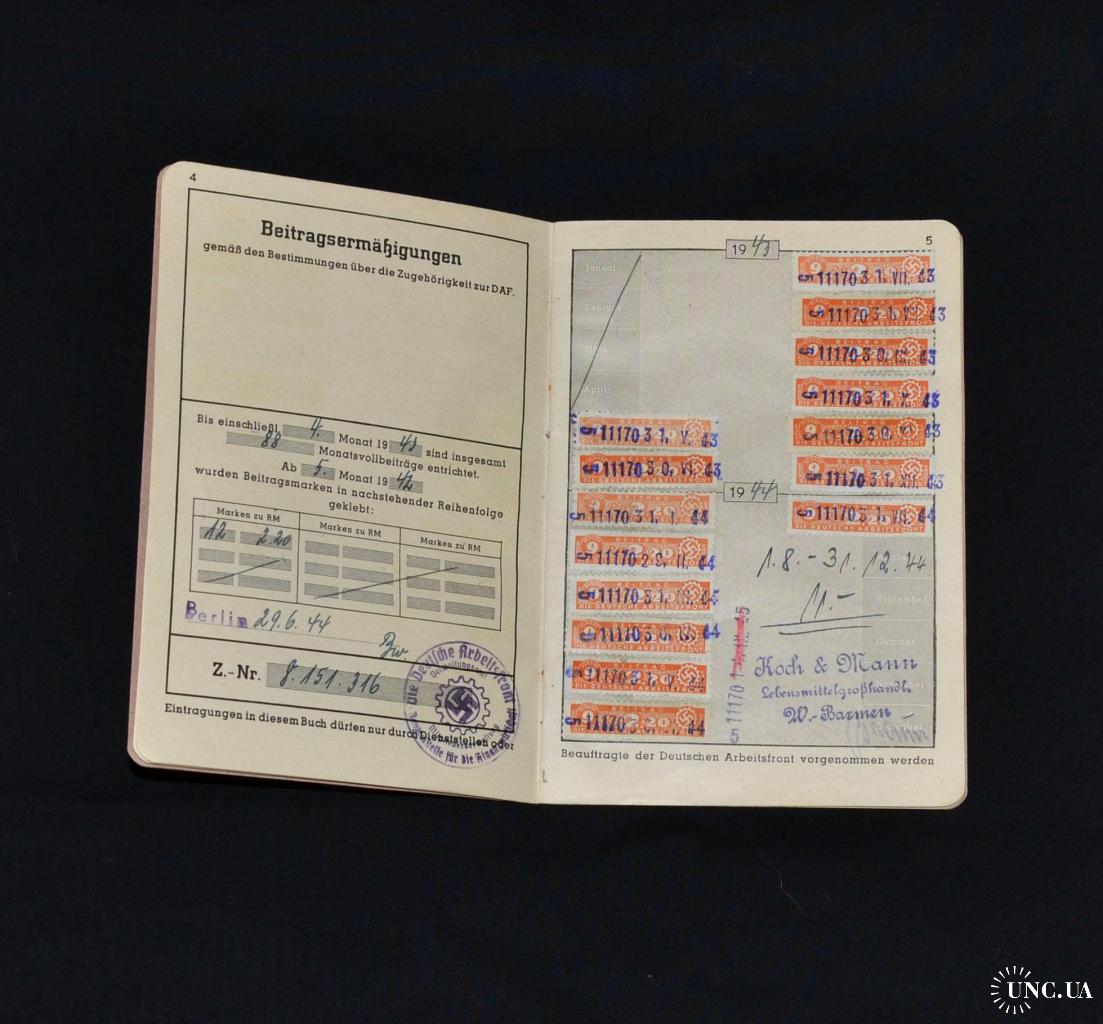 4
Beitragsermäßigungen
gemäß den Bestimmungen über die Zugehörigkeit zur DAF.
Bis einschließl. 4. Monat 1943 sind insgesamt
88 Monatsvollbeiträge entrichtet.
Ab 5. Monat 1942
wurden Beitragsmarken in nachstehender Reihenfolge
geklebt:
Marken zu RM Marken zu RM Marken zu RM
12 2.20
Berlin 29.6.44
Z.-Nr. 8.151.316
Die Deutsche Arbeitsfront
Eintragungen in diesem Buch dürfen nur durch Dienststellen oder
5
1943
Januar
Februar
April
5 11170 31. VII. 43
5 11170 43
5 11170 30. 43
5 11170 31. X. 43
5 11170 30. 43
5 11170 31. XII. 43
5 11170 31. V. 43
5 11170 30. VI. 43
1944
5 11170 31. I. 44
5 11170 29. II. 44
5 11170 31. 44
5 11170 30. 44
5 11170 31. V. 44
5 11170 44
5 11170 31. VII. 44
BEITRAG
DIE DEUTSCHE ARBEITSFRONT
1.8.-31.12.44
11.-
September
Oktober
5 11170
Koch & Mann
Lebensmittelgroßhandl.
W.-Barmen
Beauftragte der Deutschen Arbeitsfront vorgenommen werden
UNC.UA